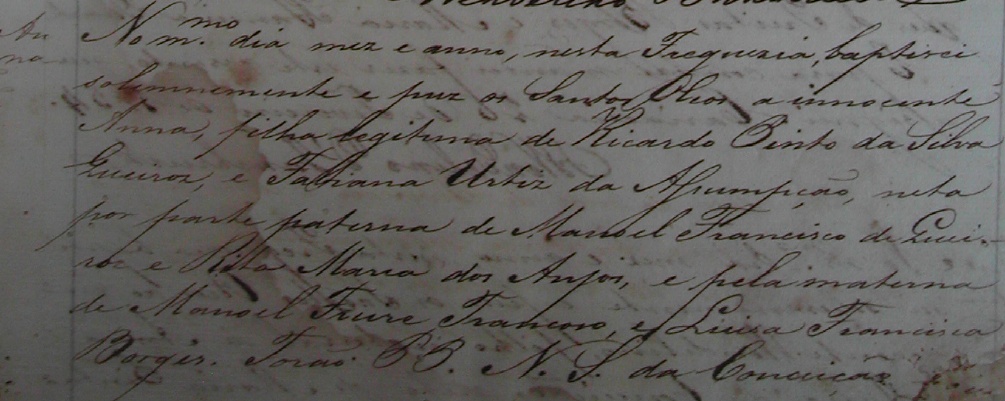 No m.mo dia mez e anno, nesta Freguezia, baptisei
solemnemente e puz os Santos Oleos a innocente
Anna, filha legitima de Ricardo Pinto da Silva
Gueiroz, e Fabiana Urtiz da Assumpção, neta
por parte paterna de Manoel Francisco de Guei-
roz e Rita Maria dos Anjos, e pela materna
de Manoel Freire Francoso, e Luisa Francisca
Borges. Forão PP. N. S. da Conceição